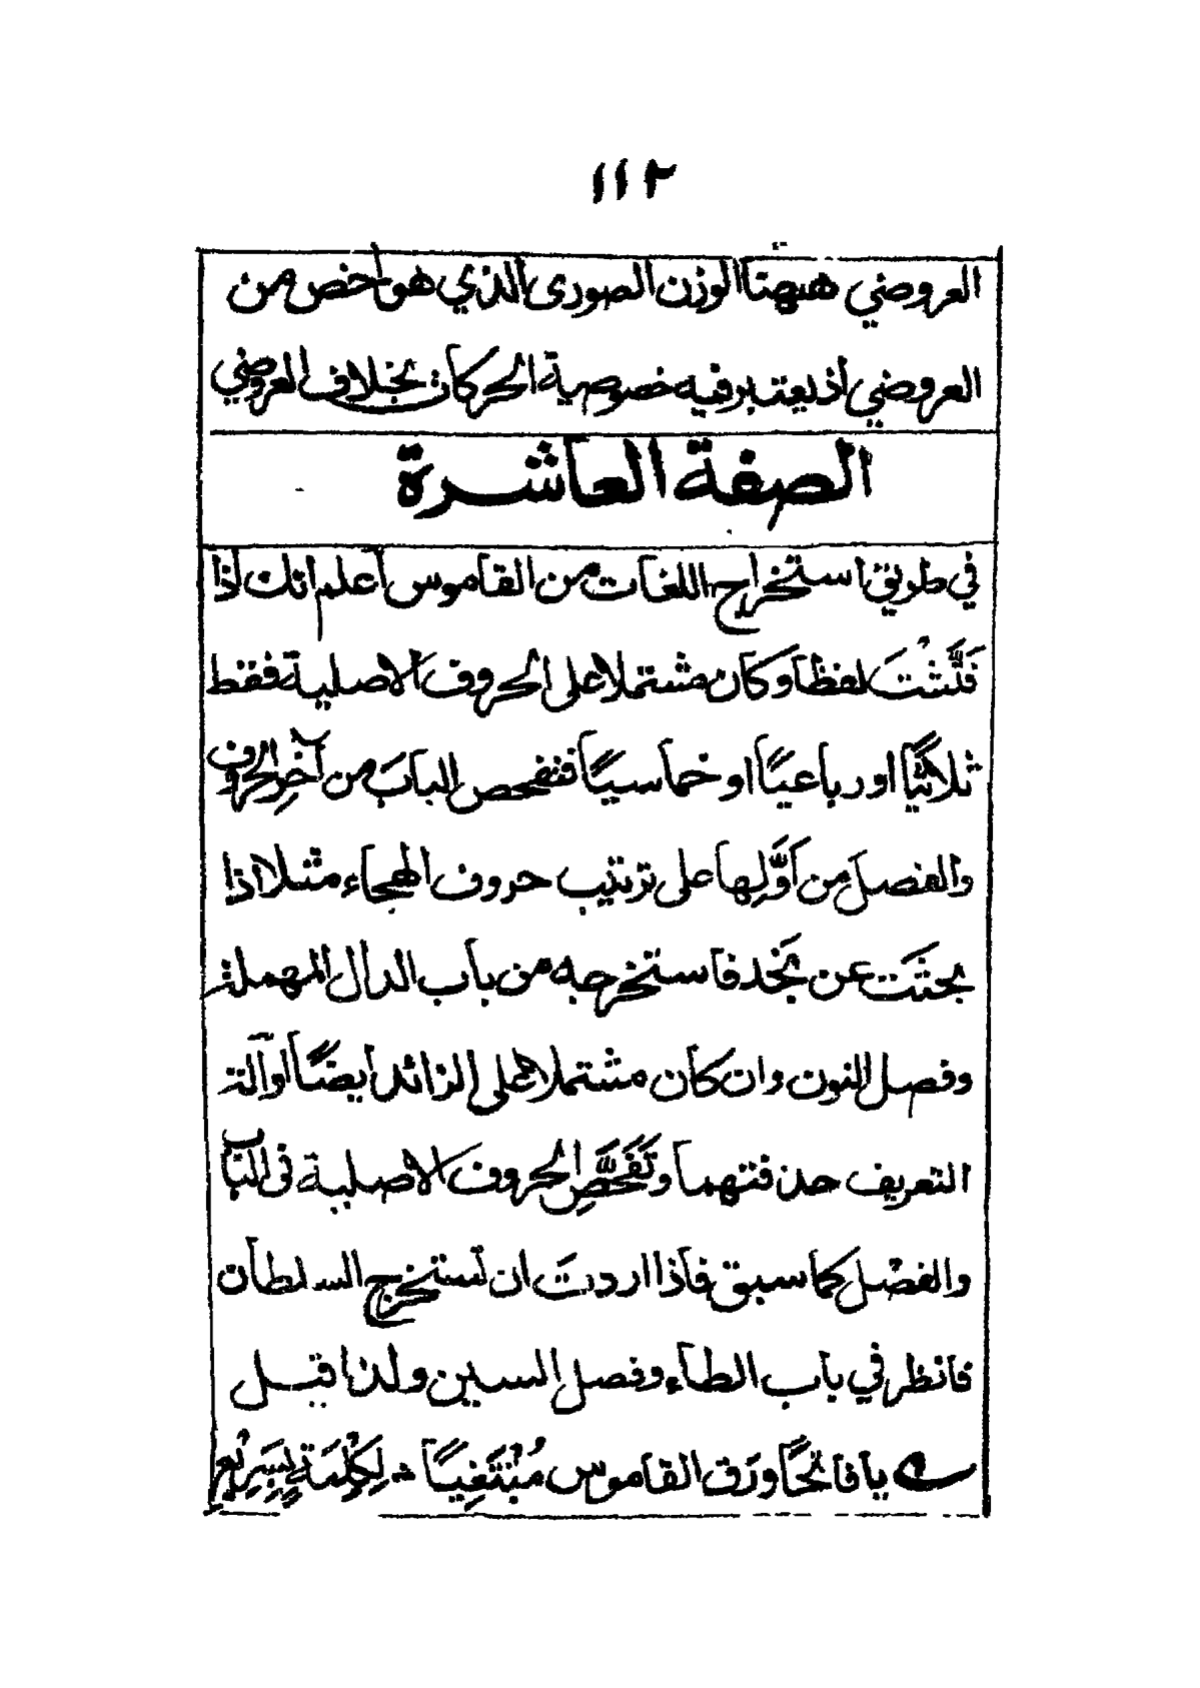 ١١٢
العروضي ههنا الوزن الصورى الذي هو اخص من
العروضي اذ يعتبر فيه خصوصية الحركات بخلاف العروضي
الصفة العاشرة
في طريق استخراج اللغات من القاموس أعلم انك اذا
فَتَّشْتَ لفظا وكان مشتملا على الحروف الاصلية فقط
ثلاثيًّا او رباعيًا او خماسيًا فتفحص البابَ من آخِرِ الحروف
والفصلَ مِن اَوَّلِها على ترتيب حروف الهجاء مثلا اذا
بحثتَ عن نَجْد فاستخرجه من باب الدال المهملة
وفصل النون وان كان مشتملا على الزائد أيضًا او آلة
التعريف حذفتهما وتَفَحَّصِ الحروف الاصلية فى الباب
والفصْل كما سبق فاذا اردتَ ان تستخرج السلطان
فانظر في باب الطاء وفصل السين ولذا قيل
يا فاتحًا ورَق القاموس مُبْتَغِيًا ؞ لِكَلِمَةٍ بِسَرِيْعِ